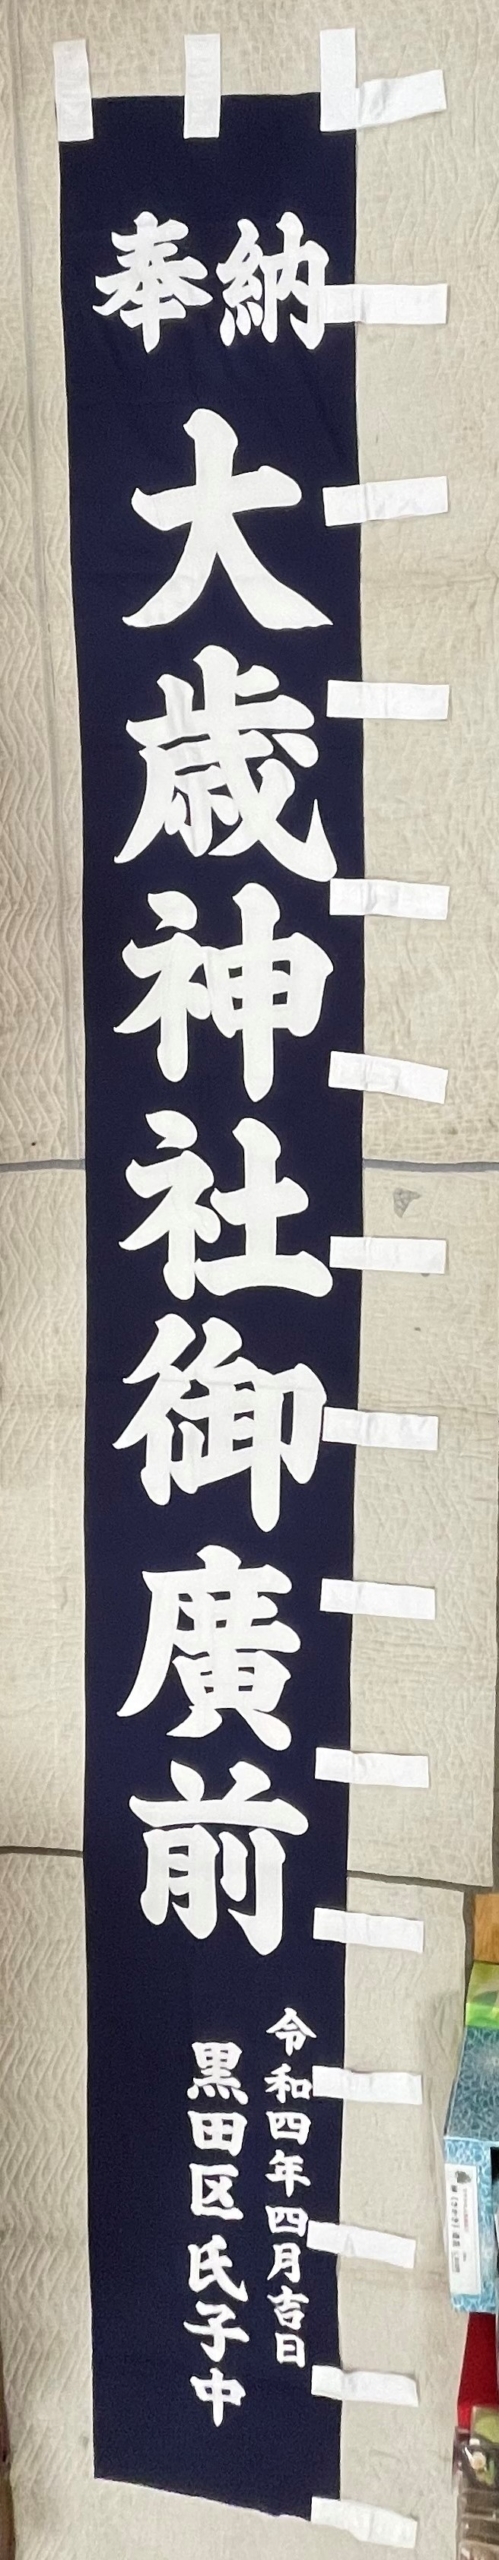 奉納
大歳神社御廣前
令和四年四月吉日
黒田区氏子中